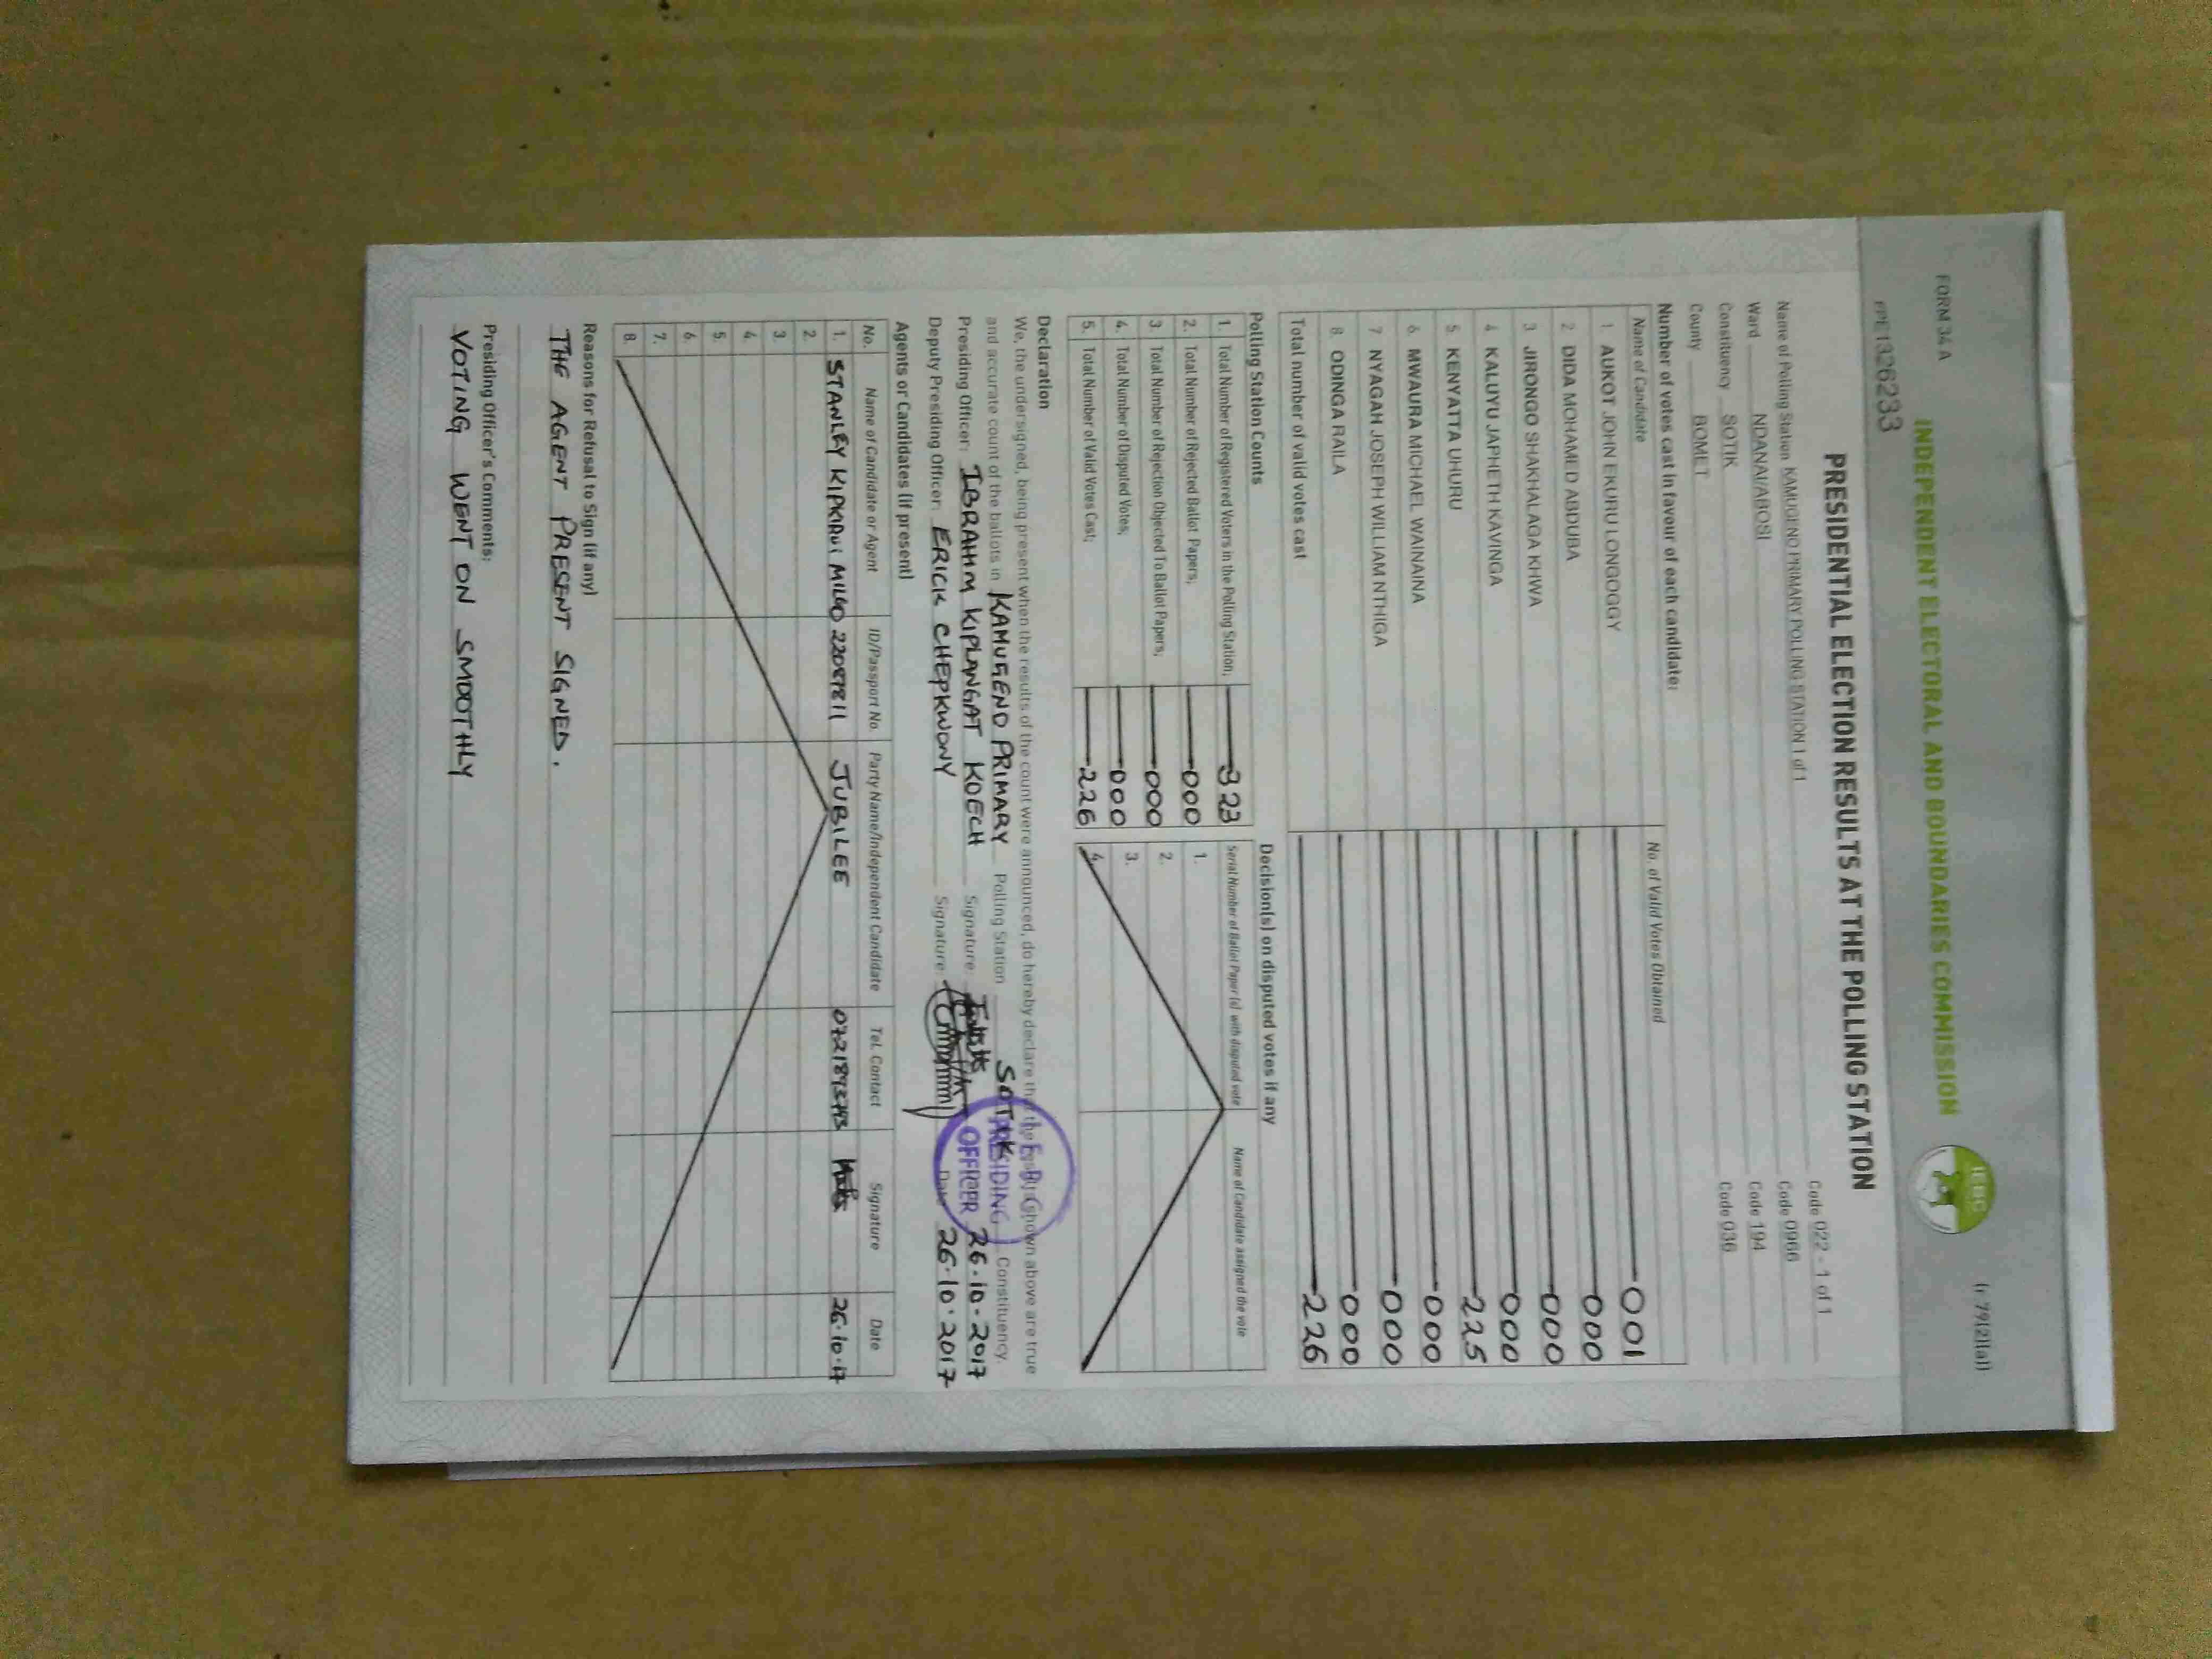 FORM 34 A
(r. 79(2)(a))
INDEPENDENT ELECTORAL AND BOUNDARIES COMMISSION
IEBC
PPE1326233
PRESIDENTIAL ELECTION RESULTS AT THE POLLING STATION
Name of Polling Station KAMUGENO PRIMARY POLLING STATION 1 of 1 Code 022 - 1 of 1
Code 0966
Ward NDANAI/ABOSI Code 194
Constituency SOTIK Code 036
County BOMET
Number of votes cast in favour of each candidate:
Name of Candidate No. of Valid Votes Obtained
1. AUKOT JOHN EKURU LONGOGGY 001
2 DIDA MOHAMED ABDUBA 000
3 JIRONGO SHAKHALAGA KHWA 000
4 KALUYU JAPHETH KAVINGA 000
5 KENYATTA UHURU 225
6. MWAURA MICHAEL WAINAINA 000
7 NYAGAH JOSEPH WILLIAM NTHIGA 000
8. ODINGA RAILA 000
Total number of valid votes cast 226
Polling Station Counts
1. Total Number of Registered Voters in the Polling Station; 323
2. Total Number of Rejected Ballot Papers; 000
3. Total Number of Rejection Objected To Ballot Papers; 000
4. Total Number of Disputed Votes; 000
5. Total Number of Valid Votes Cast; 226
Decision(s) on disputed votes if any
Serial Number of Ballot Paper (s) with disputed vote Name of Candidate assigned the vote
1.
2.
3.
4.
Declaration
We, the undersigned, being present when the results of the count were announced, do hereby declare that the results shown above are true
and accurate count of the ballots in KAMUGENO PRIMARY Polling Station SOTIK Constituency.
Presiding Officer: IBRAHIM KIPLANGAT KOECH Signature: 26.10.2017
Deputy Presiding Officer: ERICK CHEPKWONY Signature: Date 26.10.2017
I.E.B.C
PRESIDING
OFFICER
Agents or Candidates (if present)
No. Name of Candidate or Agent ID/Passport No. Party Name/Independent Candidate Tel. Contact Signature Date
1. STANLEY KIPKIRUI 22097811 JUBILEE 26.10.17
2.
3.
4.
5.
6.
7.
8.
Reasons for Refusal to Sign (if any)
THE AGENT PRESENT SIGNED.
Presiding Officer's Comments:
VOTING WENT ON SMOOTHLY